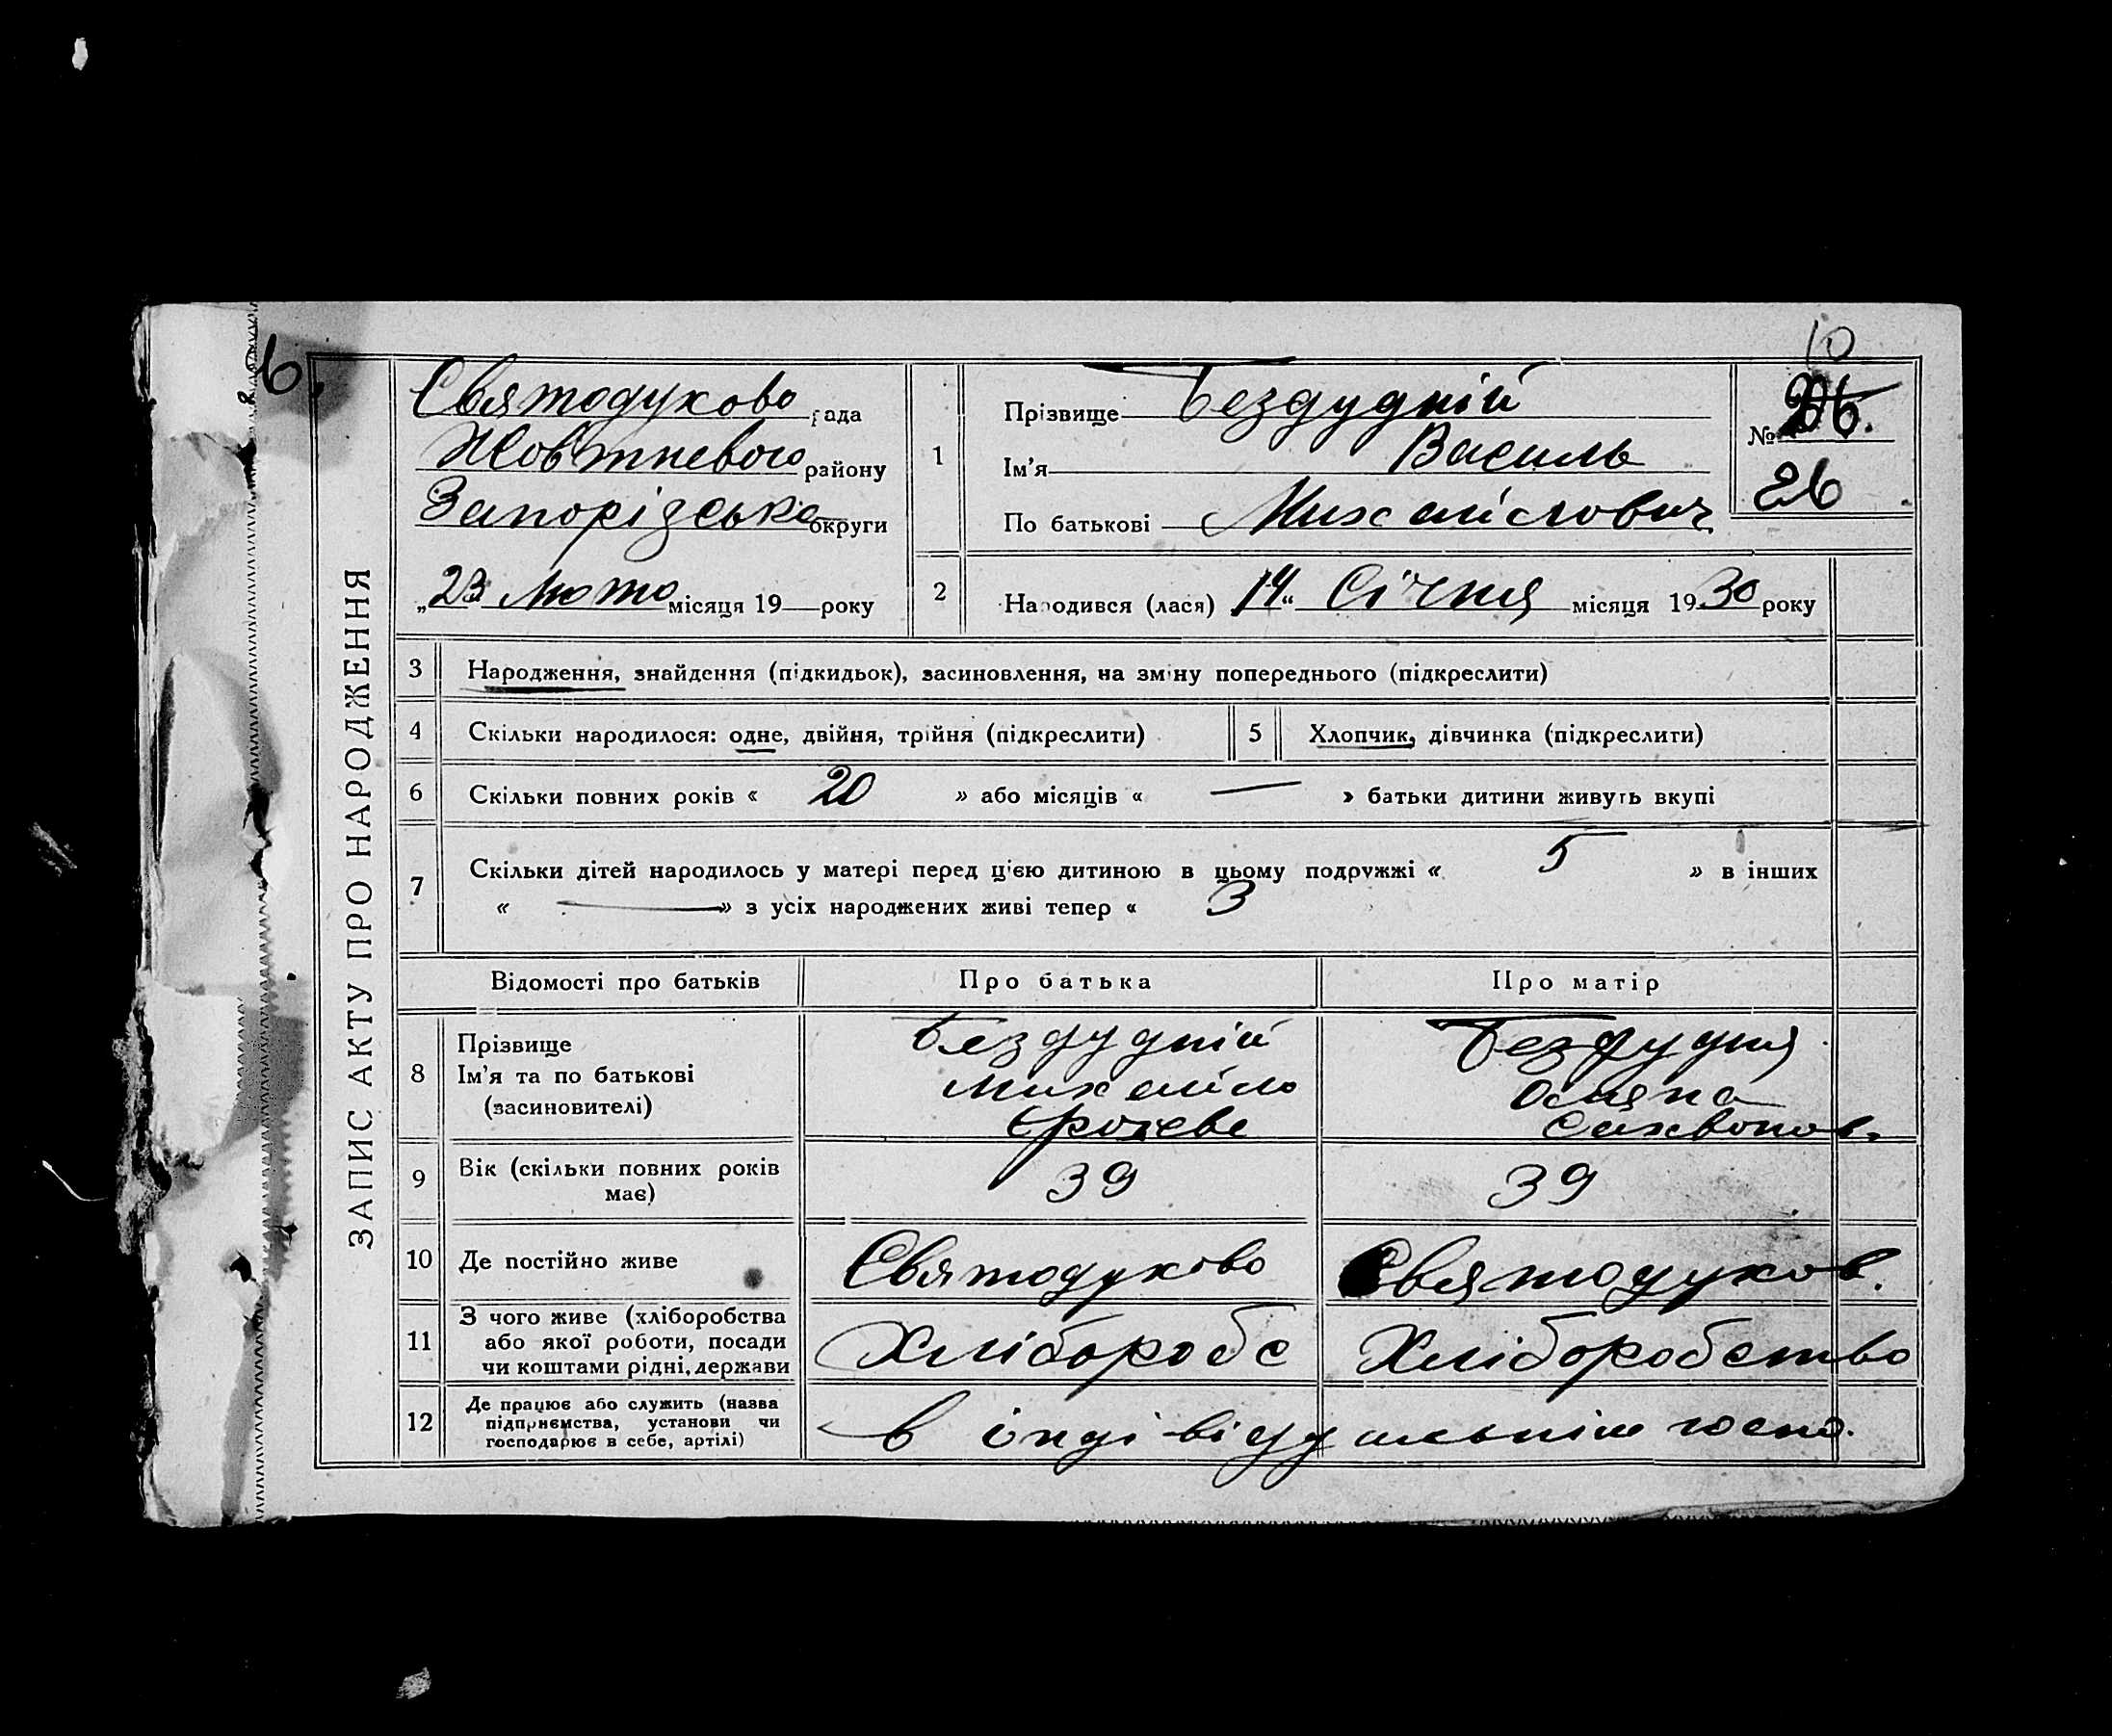 10
6.
ЗАПИС АКТУ ПРО НАРОДЖЕННЯ
Святодухово рада
Жовтневого району
Запорізське округи
„23 Люто місяця 19 року
1
Прізвище Бездудній
Ім'я Василь
По батькові Михайлович
№ 26.
26
2 Народився (лася) 14“ Січня місяця 1930 року
3 Народження, знайдення (підкидьок), засиновлення, на зміну попереднього (підкреслити)
4 Скільки народилося: одне, двійня, трійня (підкреслити) 5 Хлопчик, дівчинка (підкреслити)
6 Скільки повних років « 20 » або місяців « — » батьки дитини живуть вкупі
7 Скільки дітей народилось у матері перед цією дитиною в цьому подружжі « 5 » в інших
« — » з усіх народжених живі тепер « 3
Відомості про батьків Про батька Про матір
8 Прізвище
Ім'я та по батькові
(засиновителі)
Бездудній
Михайло
Бездудня
9 Вік (скільки повних років
має)
39 39
10 Де постійно живе Святодухово Святодухов.
11 З чого живе (хліборобства
або якої роботи, посади
чи коштами рідні, держави
Хліборобс Хліборобство
12 Де працює або служить (назва
підприємства, установи чи
господарює в себе, артілі)
в індівідуальнім госпо.